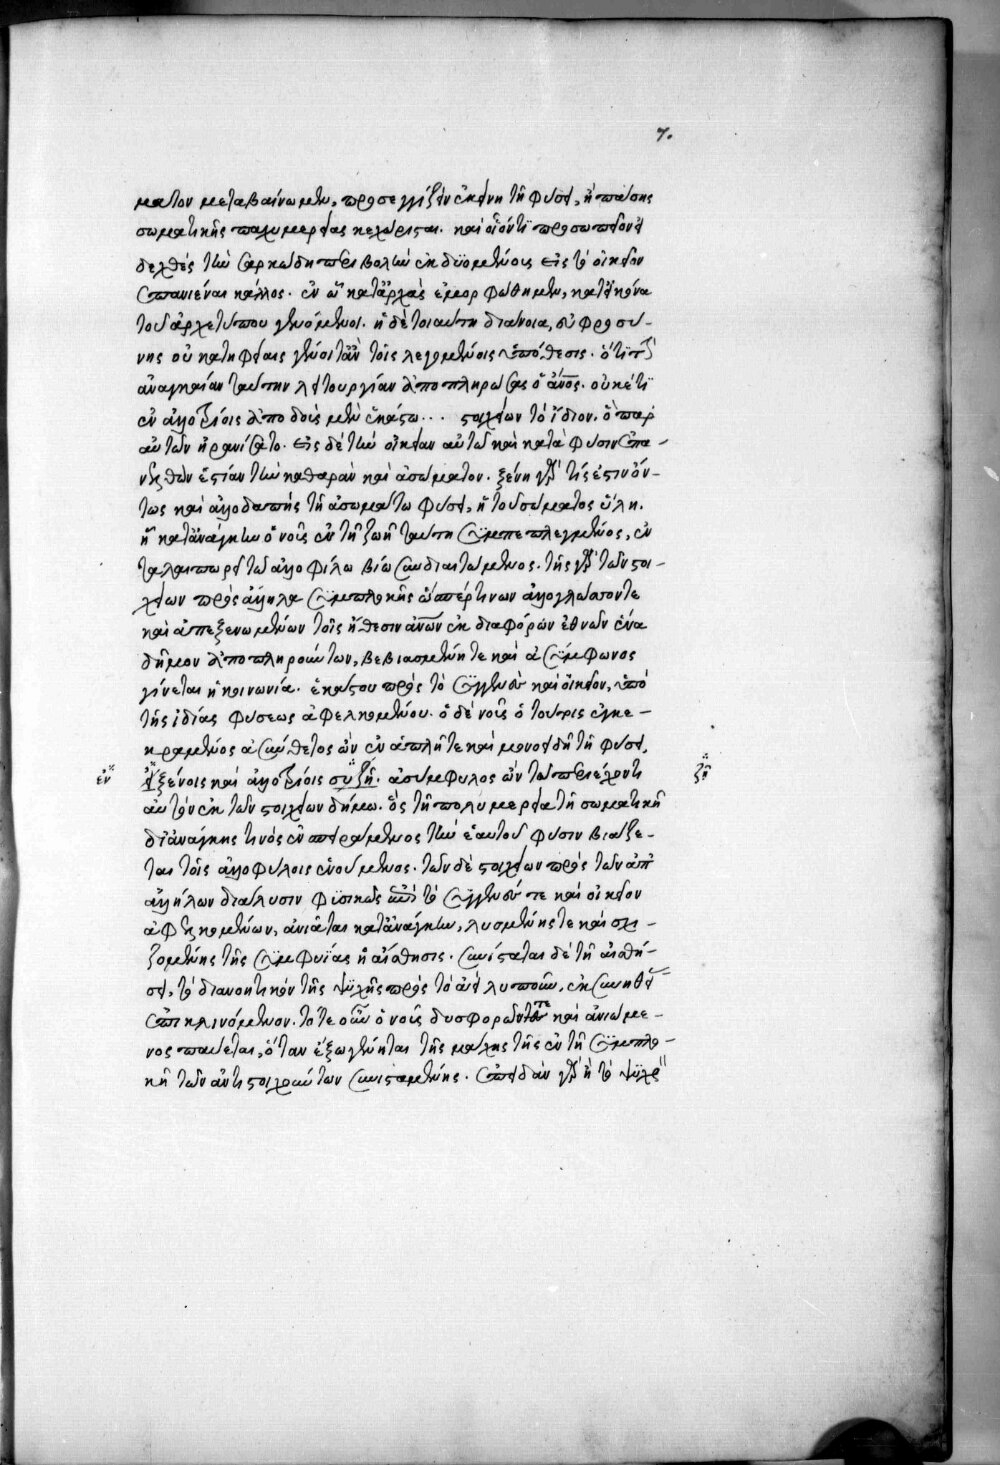 7.
ματον μεταβαίνωμεν, προσεγγίζειν ἐκείνῃ τῇ φύσει, ἣ πάσης
σωματικῆς παχυμερείας κεχώρισται. καὶ οἱονεὶ προσωπεῖον εἰ
δεχθὲς τὴν σαρκώδη περιβολὴν ἐκδυομένους εἰς τὸ οἰκεῖον
ἐπανιέναι κάλλος. ἐν ᾧ κατἀρχὰς ἐμορφώθημεν, κατεἰκόνα
τοῦ ἀρχετύπου γενόμενοι. ἡ δὲ τοιαύτη διάνοια, εὐφροσύ-
νης οὐ κατηφείας γένοιτἂν τοῖς λεγομένοις ὑπόθεσις. ὅτι τὴν
ἀναγκαίαν ταύτην λειτουργίαν ἀποπληρώσας ὁ ἄνος. οὐκέτι
ἐν ἀλλοτρίοις ἀποδοὺς μὲν ἑκάστῳ... στοιχείων τὸ ἴδιον. ὃ παρ
αὐτῶν ἠρανίσατο. εἰς δὲ τὴν οἰκείαν αὐτῶ καὶ κατὰ φύσιν ἐπα-
νελθὼν ἑστίαν τὴν καθαρὰν καὶ ἀσώματον. ξένη γὰρ τίς ἐστιν ὄν-
τως καὶ ἀλλοδαπὴς τῇ ἀσωμάτω φύσει, ἡ τοῦ σώματος ὕλη.
ᾗ κατἀνάγκην ὁ νοῦς ἐν τῇ ζωῇ ταύτη συμπεπλεγμένος, ἐν
ταλαιπωρεῖ τῶ ἀλλοφύλω βίω συνδιαιτώμενος. τῆς γὰρ τῶν στοι-
χείων πρὸς ἄλληλα συμπλοκῆς ὥσπέρ τινων ἀλλογλώσσων τε
καὶ ἀπεξενωμένων τοῖς ἤθεσιν ἀνων ἐκ διαφόρων ἐθνῶν ἕνα
δῆμον ἀποπληρούντων, βεβιασμένη τε καὶ ἀσύμφωνος
γίνεται ἡ κοινωνία. ἑκάστου πρὸς τὸ συγγενὲς καὶ οἰκεῖον, ὑπὸ
τῆς ἰδίας φύσεως ἀφελκομένου. ὁ δὲ νοῦς ὁ τούτοις ἐγκε-
κραμένος ἀσύνθετος ὢν ἐν ἁπλῇ τε καὶ μονοειδῆ τῇ φύσει,
ἐν ξένοις καὶ ἀλλοτρίοις συζῆ. ἀσύμφυλος ὢν τῶ περιέχοντι
ζῆ
αὐτὸν ἐκ τῶν στοιχείων δήμω. ὃς τῇ πολυμερείᾳ τῇ σωματικῇ
διἀνάγκης τινὸς ἐνσπειρόμενος τὴν ἑαυτοῦ φύσιν βιάζε-
ται τοῖς ἀλλοφύλοις ἑνούμενος. τῶν δὲ στοιχείων πρὸς τῶν ἀπ
ἀλλήλων διάλυσιν φυσικῶς ἐπὶ τὸ συγγενές τε καὶ οἰκεῖον
ἀφελκομένων, ἀνιᾶται κατἀνάγκην, λυομένης τε καὶ σχι-
ζομένης τῆς συμφυΐας ἡ αἴσθησις. συνίσταται δὲ τῇ αἰσθή-
σει, τὸ διανοητικὸν τῆς ψυχῆς πρὸς τὸ ἀεὶ λυποῦν, ἐκ συνηθεί
ἐπικλινόμενον. τότε οὖν ὁ νοῦς δυσφορῶν τε καὶ ἀνιώμε-
νος παύεται, ὅταν ἔξω γένηται τῆς μάχης τῆς ἐν τῇ συμπλο-
κῇ τῶν ἀντιστοιχούντων συνισταμένης. ἐπειδὰν γὰρ ἢ τὸ ψυχρ